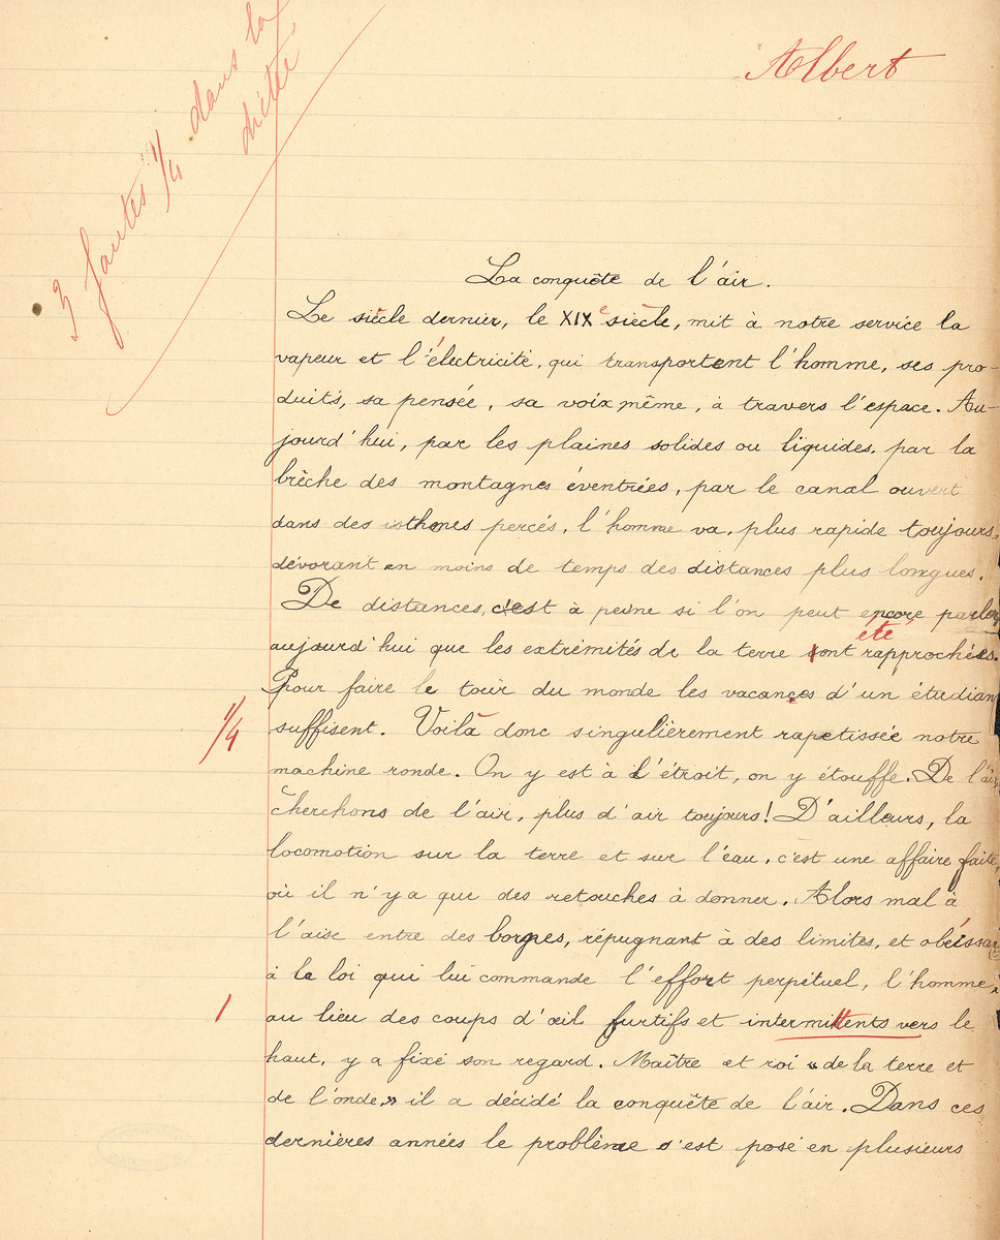 3 fautes 1/4 dans la
dictée
Albert
La conquête de l'air.
Le siècle dernier, le XIXe siècle, mit à notre service la
vapeur et l'électricité, qui transportent l'homme, ses pro-
duits, sa pensée, sa voix même, à travers l'espace. Au-
jourd'hui, par les plaines solides ou liquides, par la
brèche des montagnes éventrées, par le canal ouvert
dans des isthmes percés, l'homme va, plus rapide toujours,
dévorant en moins de temps des distances plus longues.
De distances, c'est à peine si l'on peut encore parler
été
aujourd'hui que les extrémités de la terre sont rapprochées.
Pour faire le tour du monde les vacances d'un étudian
1/4
suffisent. Voilà donc singulièrement rapetissée notre
machine ronde. On y est à l'étroit, on y étouffe. De l'air
cherchons de l'air, plus d'air toujours! D'ailleurs, la
locomotion sur la terre et sur l'eau, c'est une affaire faite,
où il n'y a que des retouches à donner. Alors mal à
l'aise entre des bornes, répugnant à des limites, et obéissan
à la loi qui lui commande l'effort perpétuel, l'homme,
1
au lieu des coups d'œil furtifs et intermittents vers le
haut, y a fixé son regard. Maître et roi « de la terre et
de l'onde,» il a décidé la conquête de l'air. Dans ces
dernières années le problème s'est posé en plusieurs